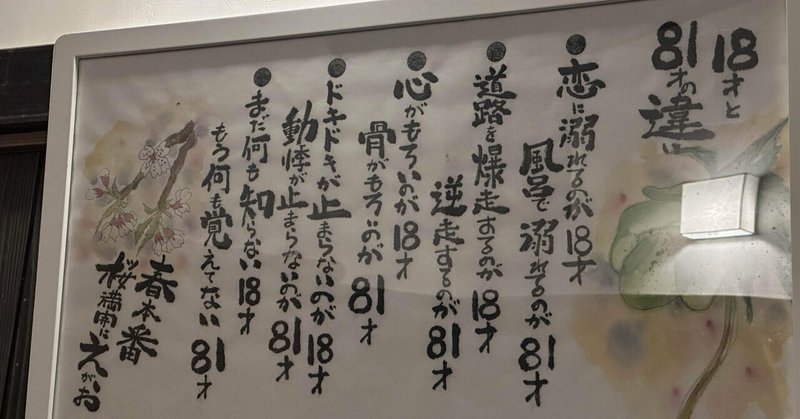 18才と
81才の違い
●恋に溺れるのが18才
風呂で溺れるのが81才
●道路を爆走するのが18才
逆走するのが81才
●心がもろいのが18才
骨がもろいのが81才
●ドキドキが止まらないのが18才
動悸が止まらないのが81才
●まだ何も知らない18才
もう何も覚えてない81才
春本番
桜満開にえがお